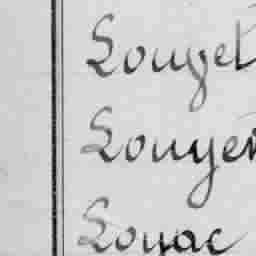 Louyet
Louyer
Louac